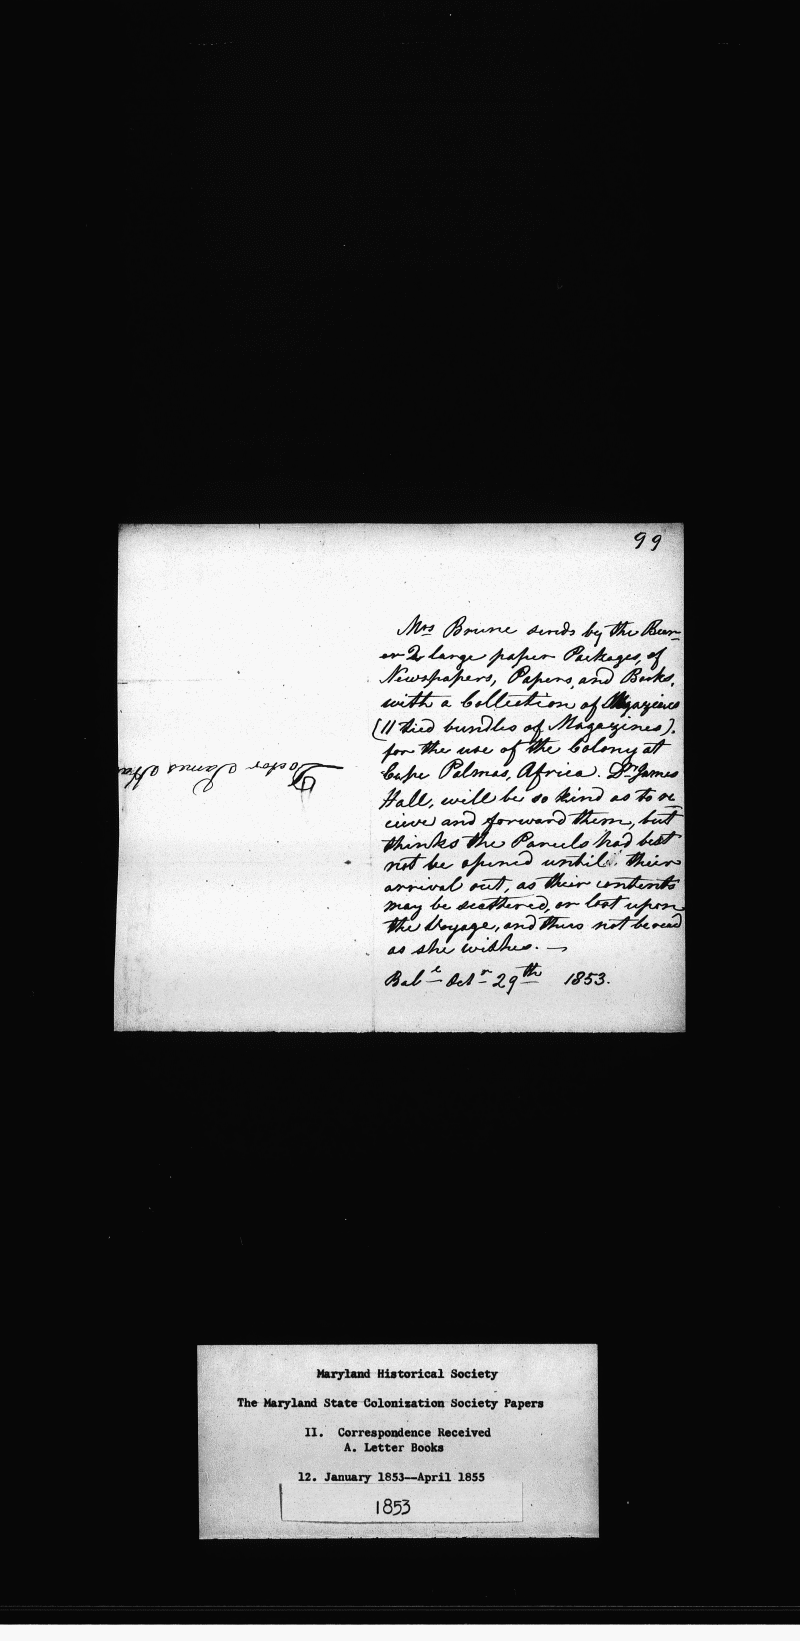 99
Mrs Brune sends by the Bear-
er 2 large paper Packages, of
Newspapers, Papers, and Books,
with a Collection of Magazines
(11 tied bundles of Magazines).
for the use of the Colony at
Cape Palmas, Africa. Dr James
Hall, will be so kind as to re
ceive and forward them, but
thinks the Parcels had best
not be opened until their
arrival out, as their contents
may be scattered, or lost upon
the Voyage, and thus not be read
as she wishes. —
Balte Octr 29th 1853.
Doctor James Ha
Maryland Historical Society
The Maryland State Colonization Society Papers
II. Correspondence Received
A. Letter Books
12. January 1853--April 1855
1853